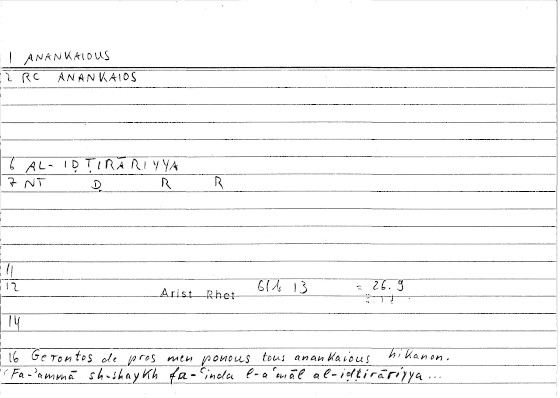 1 ANANKAIOUS
2 RC ANANKAIOS
6 AL-IḌṬIRĀRIYYA
7 NT Ḍ R R
11
12 Arist Rhet 61b 13 = 26.9
14
16 Gerontos de pros men ponous tous anankaious hikanon.
Fa-'ammā sh-shaykh fa-ʿinda l-a'māl al-iḍṭirāriyya...